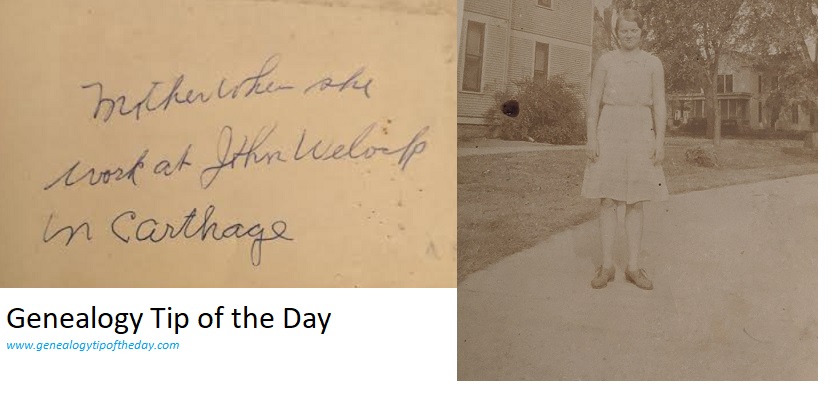 Mother when she
work at John
in Carthage
Genealogy Tip of the Day
www.genealogytipoftheday.com